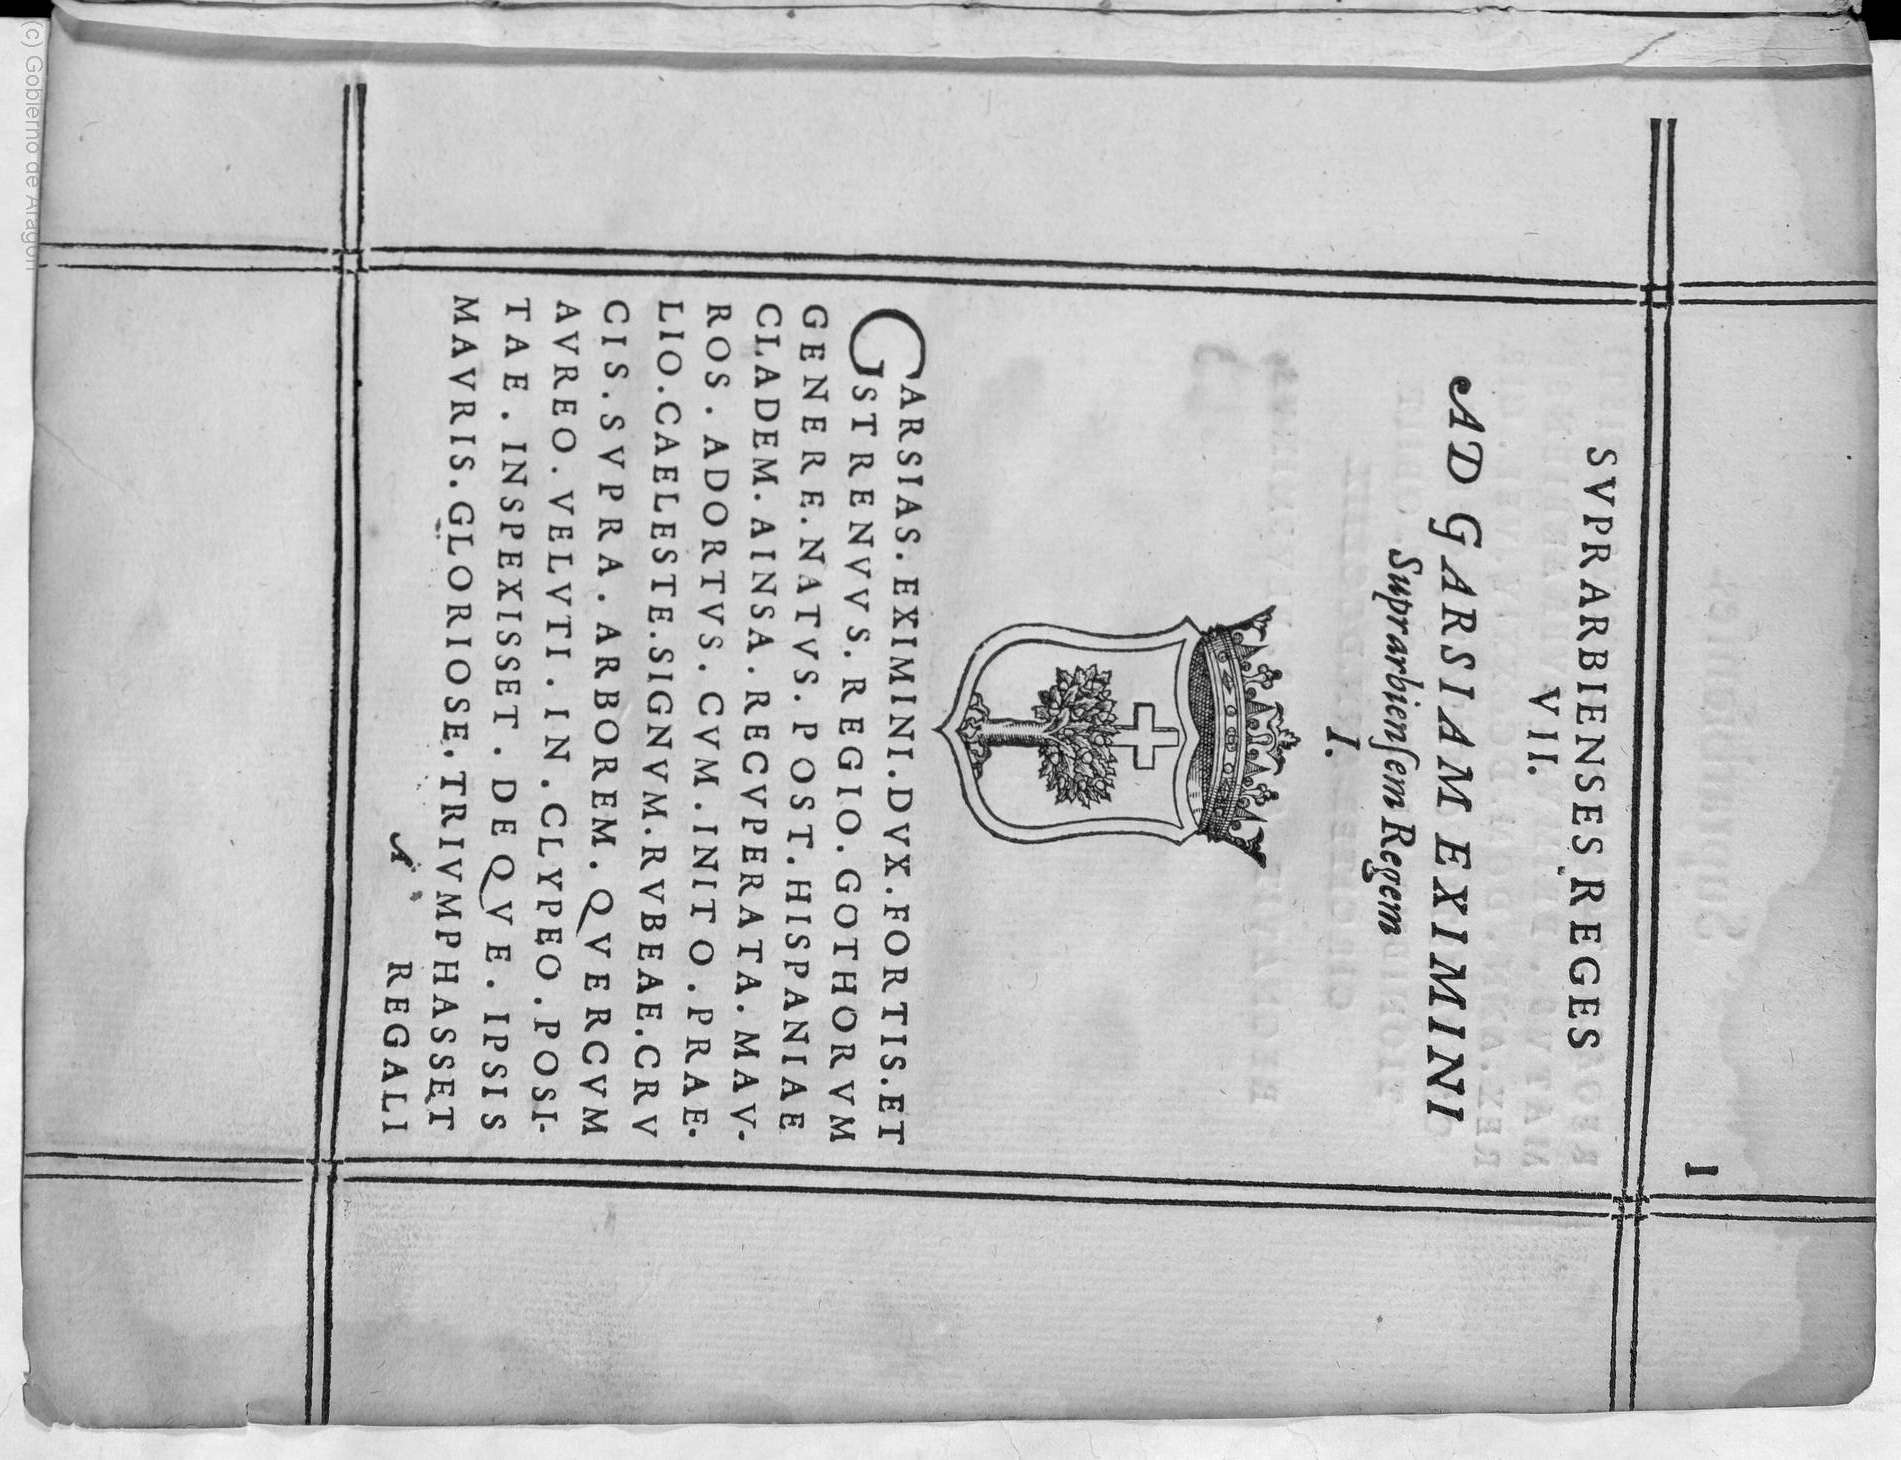 1
SVPRARBIENSES REGES
VII.
AD GARSIAM EXIMINI
Suprarbienſem Regem
I.
GARSIAS. EXIMINI. DVX. FORTIS. ET
STRENVVS. REGIO. GOTHORVM
GENERE. NATVS. POST. HISPANIAE
CLADEM. AINSA. RECVPERATA. MAV-
ROS. ADORTVS. CVM. INITO. PRAE-
LIO. CAELESTE. SIGNVM. RVBEAE. CRV
CIS. SVPRA. ARBOREM. QVERCVM
AVREO. VELVTI. IN. CLYPEO. POSI-
TAE. INSPEXISSET. DEQVE. IPSIS
MAVRIS. GLORIOSE. TRIVMPHASSET
A REGALI
(c) Gobierno de Aragón